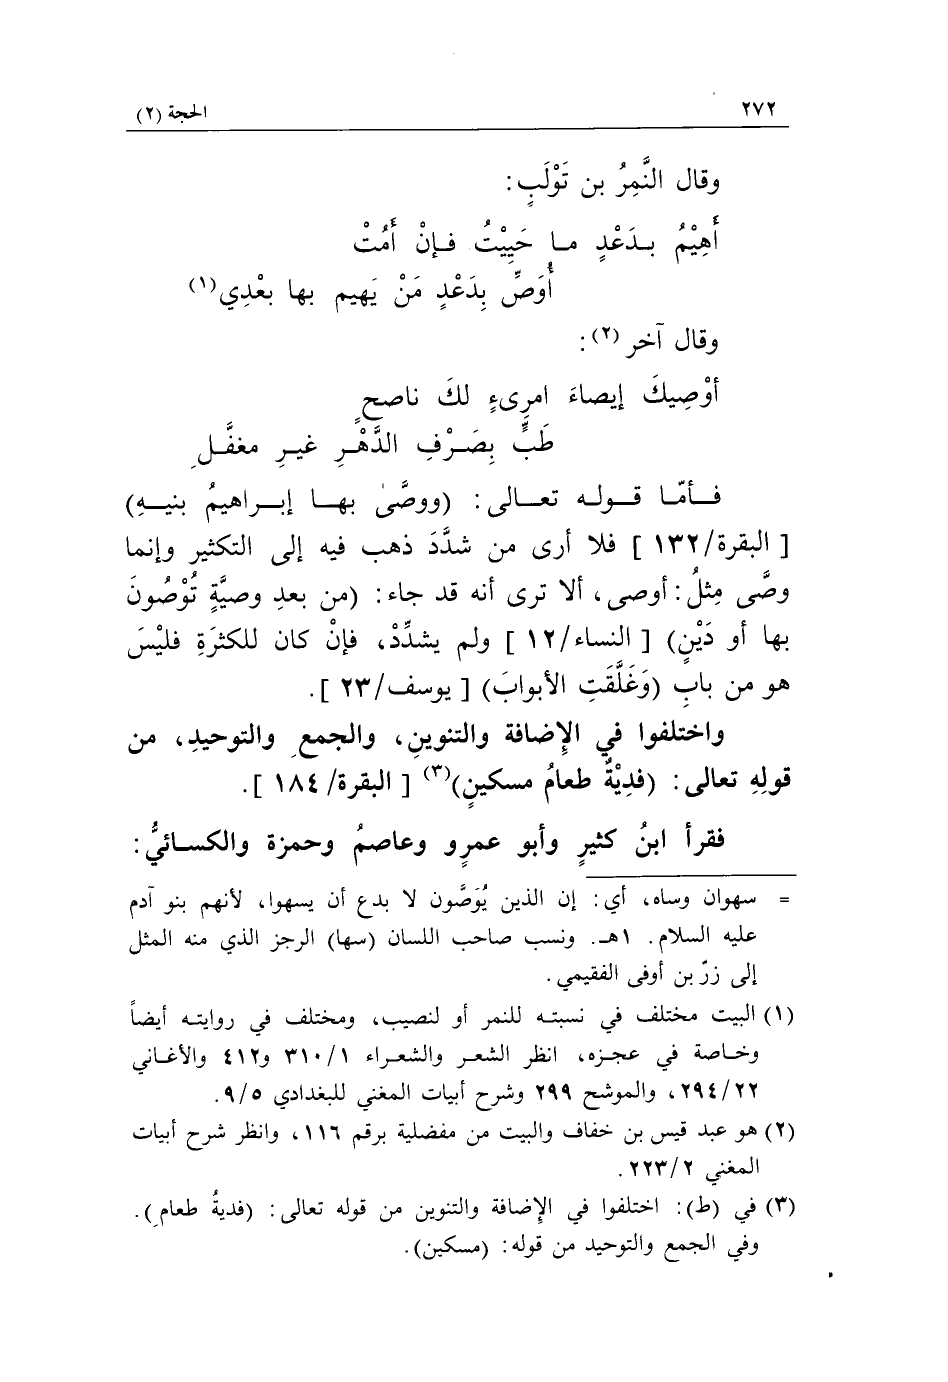 ٢٧٢ الحجة (٢)
وقال النَّمِرُ بن تَوْلَبٍ:
أَهِيْمُ بـدَعْدٍ مـا حَيِيْتُ فـإنْ أَمُتْ
أُوَصِّ بِدَعْدٍ مَنْ يَهيم بها بعْدِي(١)
وقال آخر (٢):
أوْصِيكَ إيصاءَ امرِىءٍ لكَ ناصحٍ
طَبٍّ بِصَـرْفِ الدَّهْـرِ غيـرِ مغفَّـلِ
فـأمّـا قـولـه تعـالى: (ووصَّىٰ بهـا إبـراهيمُ بنيـهِ)
[ البقرة/١٣٢ ] فلا أرى من شدَّدَ ذهب فيه إلى التكثير وإنما
وصَّى مِثلُ: أوصى، ألا ترى أنه قد جاء: (من بعدِ وصيَّةٍ تُوْصُونَ
بها أو دَيْنٍ) [ النساء/١٢ ] ولم يشدِّدْ، فإنْ كان للكثرَةِ فليْسَ
هو من بابِ (وَغَلَّقَتِ الأبوابَ) [ يوسف/٢٣ ].
واختلفوا في الإِضافة والتنوينِ، والجمعِ والتوحيدِ، من
قولِهِ تعالى: (فدِيْةٌ طعامُ مسكينٍ)(٣) [ البقرة/ ١٨٤ ].
فقرأ ابنُ كثيرٍ وأبو عمرٍو وعاصمُ وحمزة والكسـائيُّ:
= سهوان وساه، أي: إن الذين يُوَصَّون لا بدع أن يسهوا، لأنهم بنو آدم
عليه السلام. ١هـ. ونسب صاحب اللسان (سها) الرجز الذي منه المثل
إلى زرّ بن أوفى الفقيمي.
(١) البيت مختلف في نسبتـه للنمر أو لنصيب، ومختلف في روايتـه أيضاً
وخـاصة في عجـزه، انظر الشعـر والشعـراء ٣١٠/١ و٤١٢ والأغـاني
٢٩٤/٢٢، والموشح ٢٩٩ وشرح أبيات المغني للبغدادي ٩/٥.
(٢) هو عبد قيس بن خفاف والبيت من مفضلية برقم ١١٦، وانظر شرح أبيات
المغني ٢٢٣/٢.
(٣) في (ط): اختلفوا في الإِضافة والتنوين من قوله تعالى: (فديةُ طعامِ).
وفي الجمع والتوحيد من قوله: (مسكين).